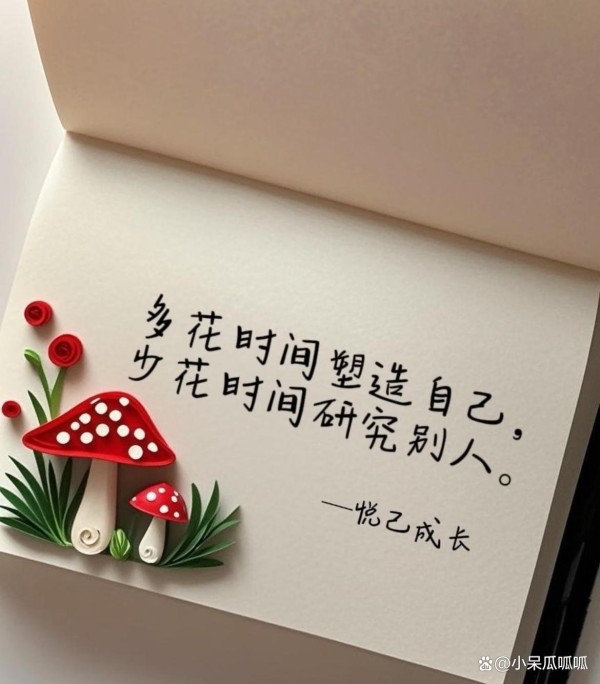 多花时间塑造自己，
少花时间研究别人。
—悦己成长
@小呆瓜呱呱